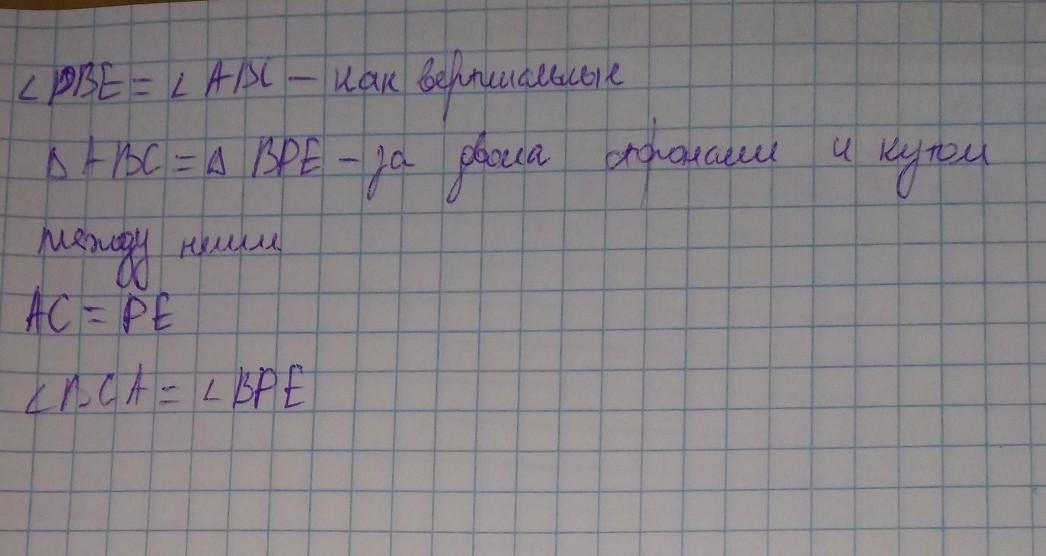 ∠PBE = ∠ABC – как вертикальные
Δ ABC = Δ BPE – за двома сторонами и кутом
между ними
AC = PE
∠BCA = ∠BPE